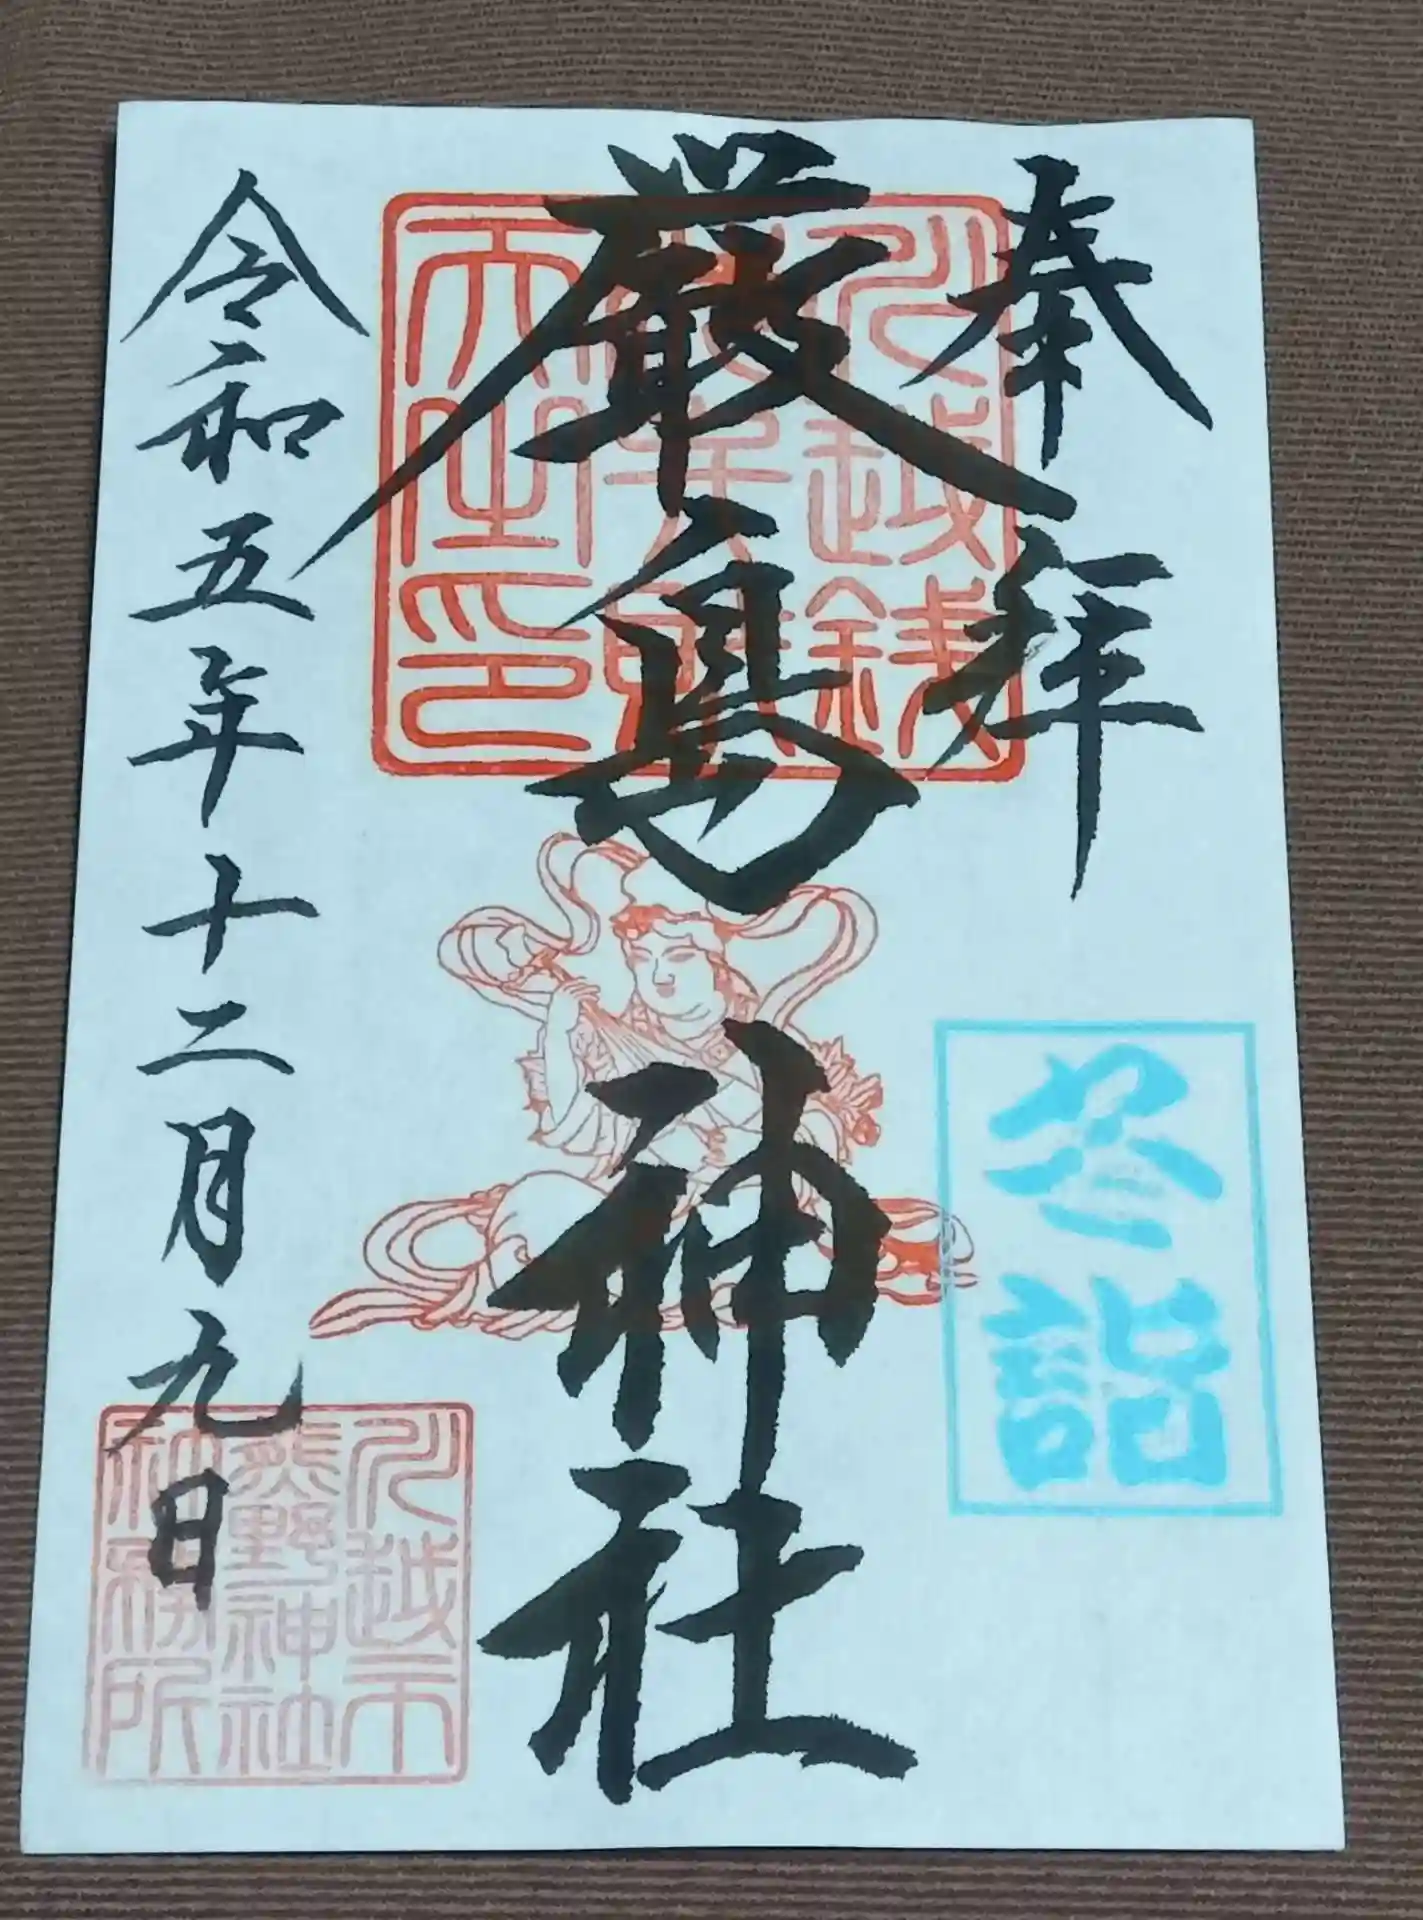 奉拝
冬詣
川越銭
洗弁財
天之印
厳島神社
令和五年十二月九日
川越市
熊野神社
社務所